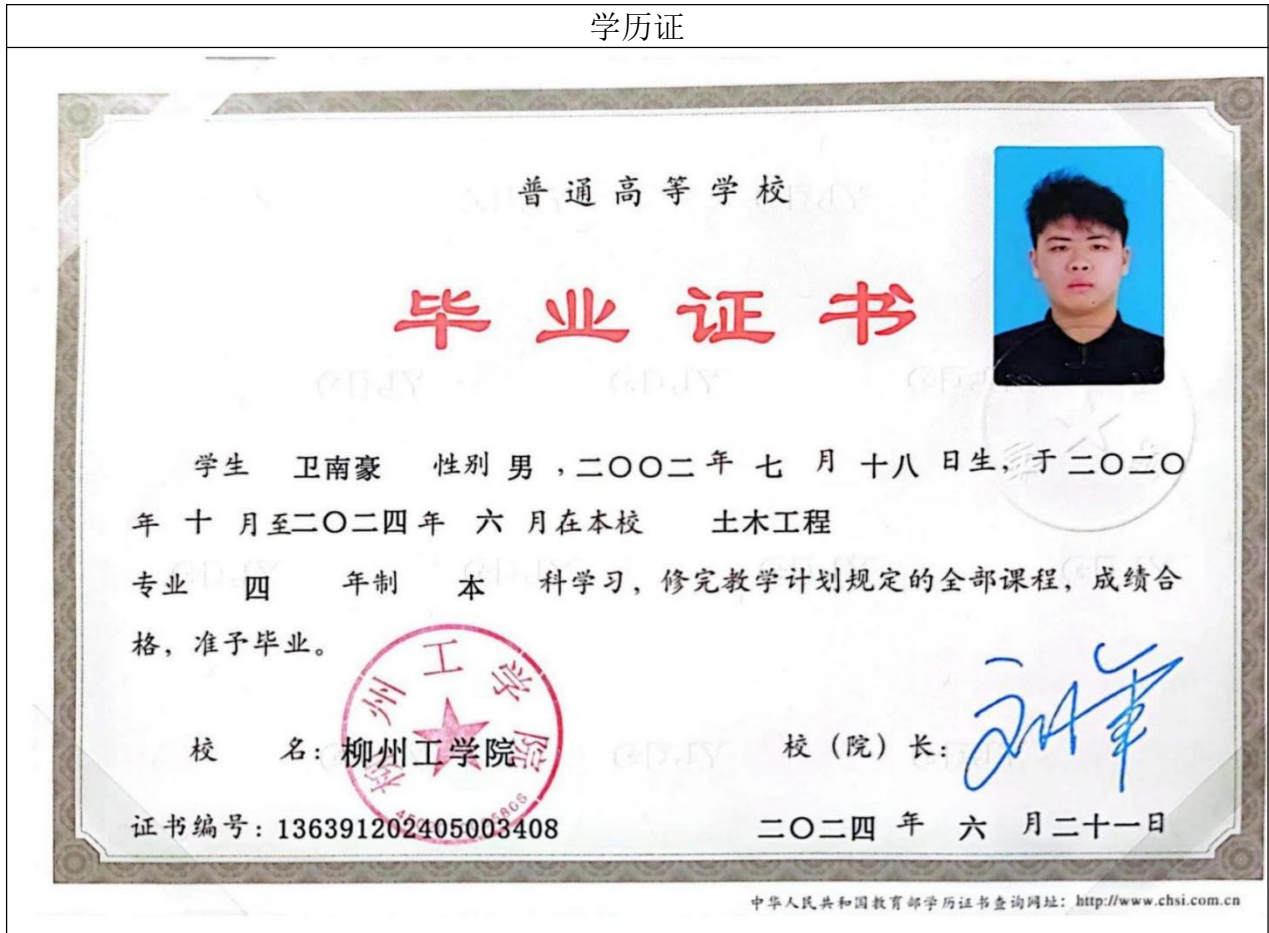 学历证
普通高等学校
毕业证书
学生 卫南豪 性别 男 ,二〇〇二 年 七 月 十八 日生, 于 二〇二〇
年 十 月至二〇二四年 六 月在本校 土木工程
专业 四 年制 本 科学习, 修完教学计划规定的全部课程, 成绩合
格, 准予毕业。
柳州工学院
校 名: 柳州工学院 校 (院) 长:
证书编号: 136391202405003408 二〇二四 年 六 月二十一日
中华人民共和国教育部学历证书查询网址: http://www.chsi.com.cn